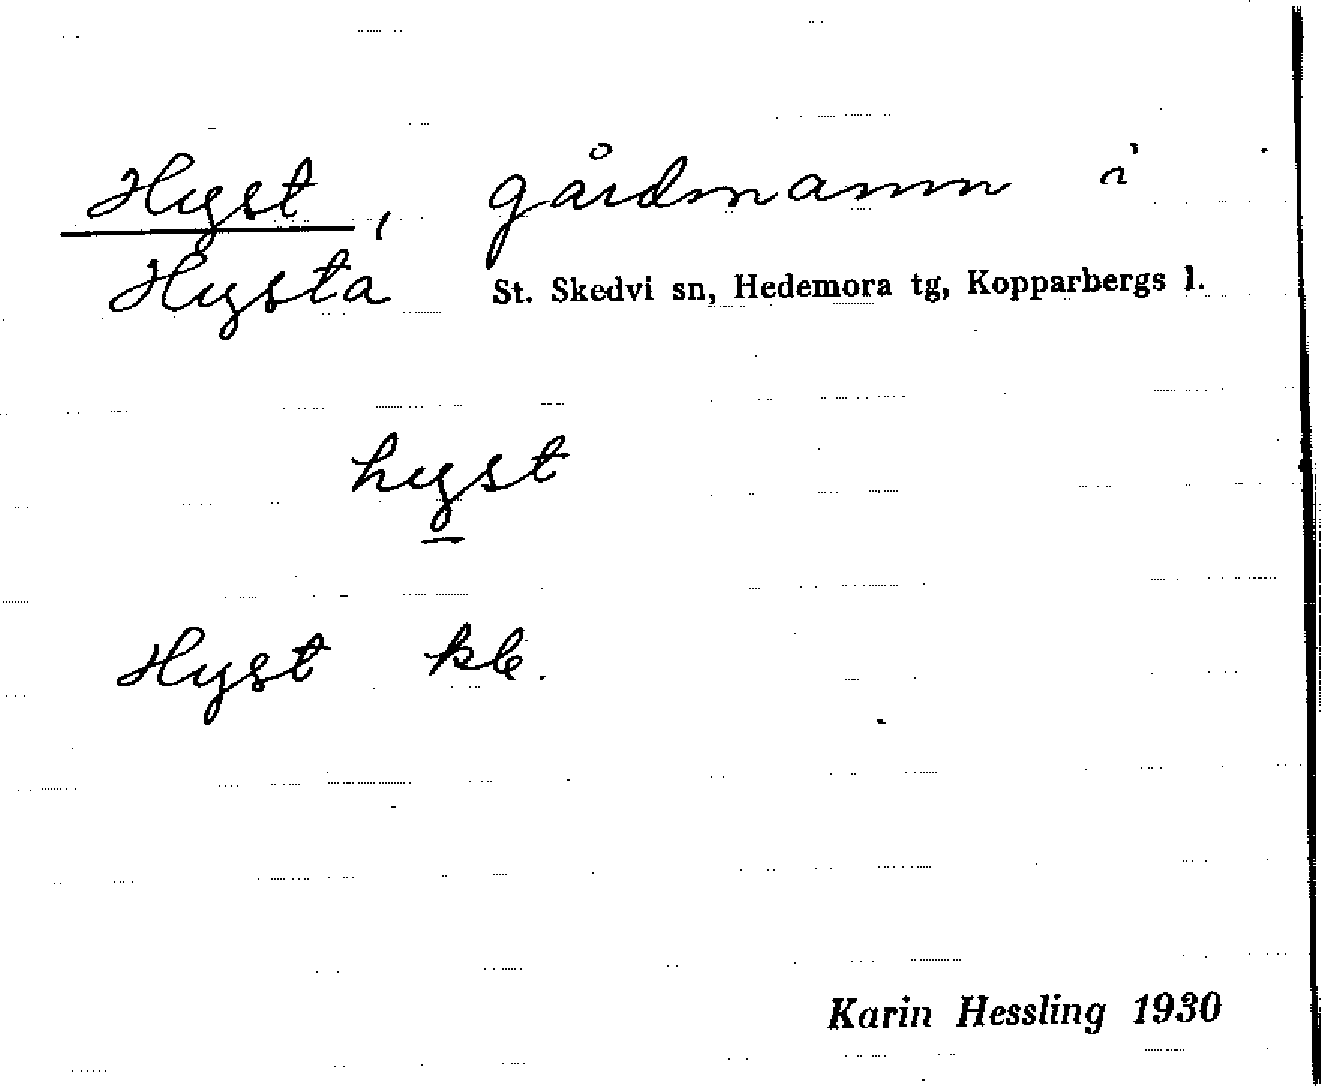 Hyst, gårdnamn i
Hysta St. Skedvi sn, Hedemora tg, Kopparbergs l.
hyst
Hyst kb.
Karin Hessling 1930